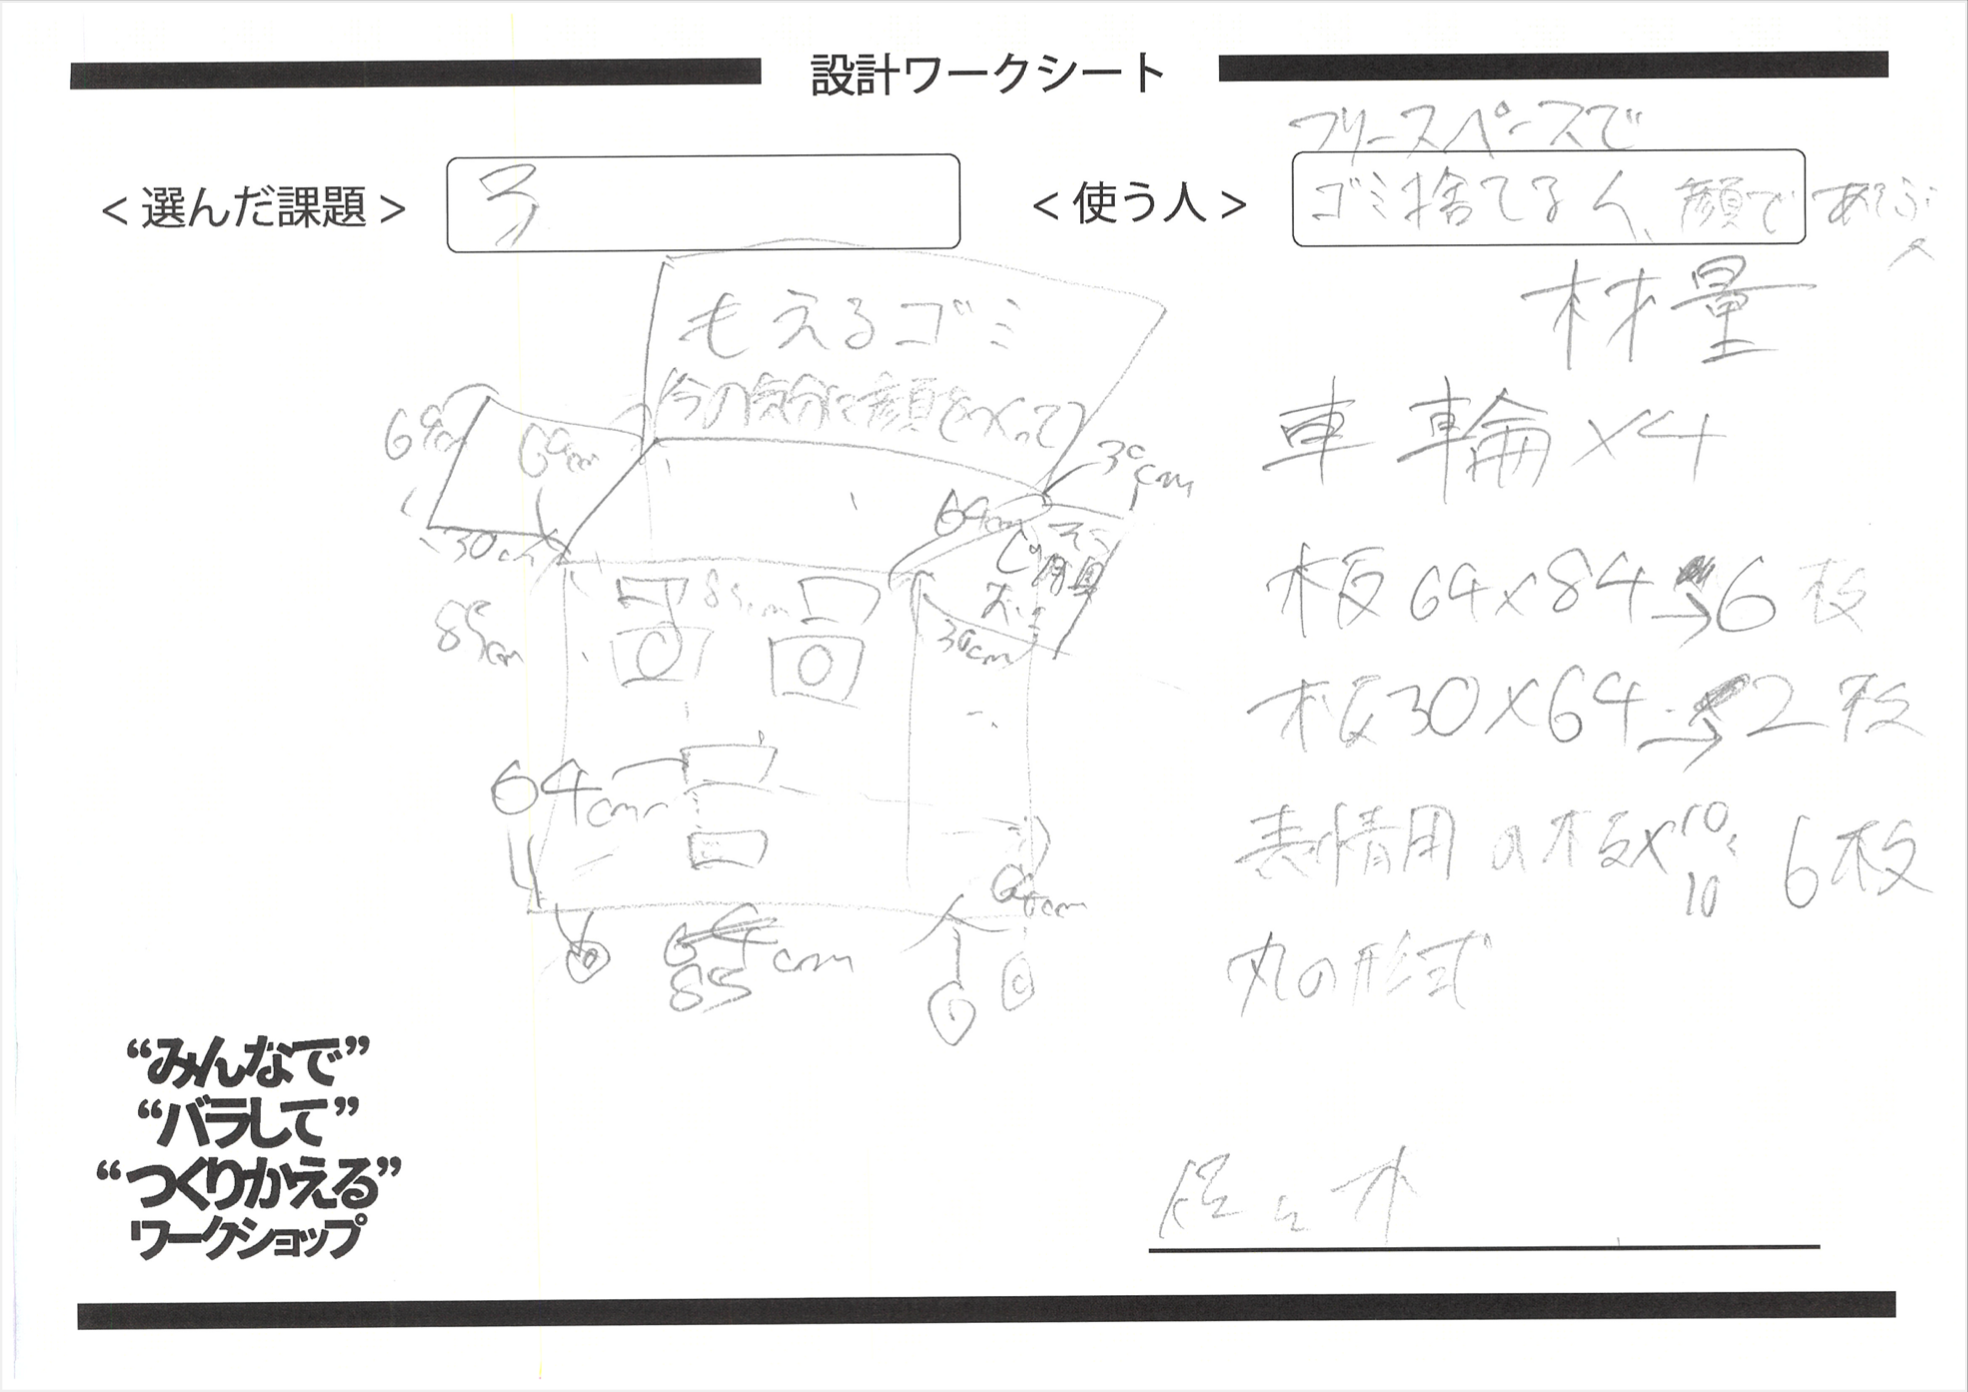 設計ワークシート
フリースペースで
<選んだ課題>
3
<使う人>
ゴミ捨てる人、顔であそぶ
人
材量
もえるゴミ
今の気分に顔をつくって
車輪×4
64cm
30cm
64cm
30cm
30cm
板64×84→6枚
85cm
85cm
板30×64→2枚
64cm
表情用の板×10×10 6枚
64cm
85
丸の形式
“みんなで”
“バラして”
“つくりかえる”
ワークショップ